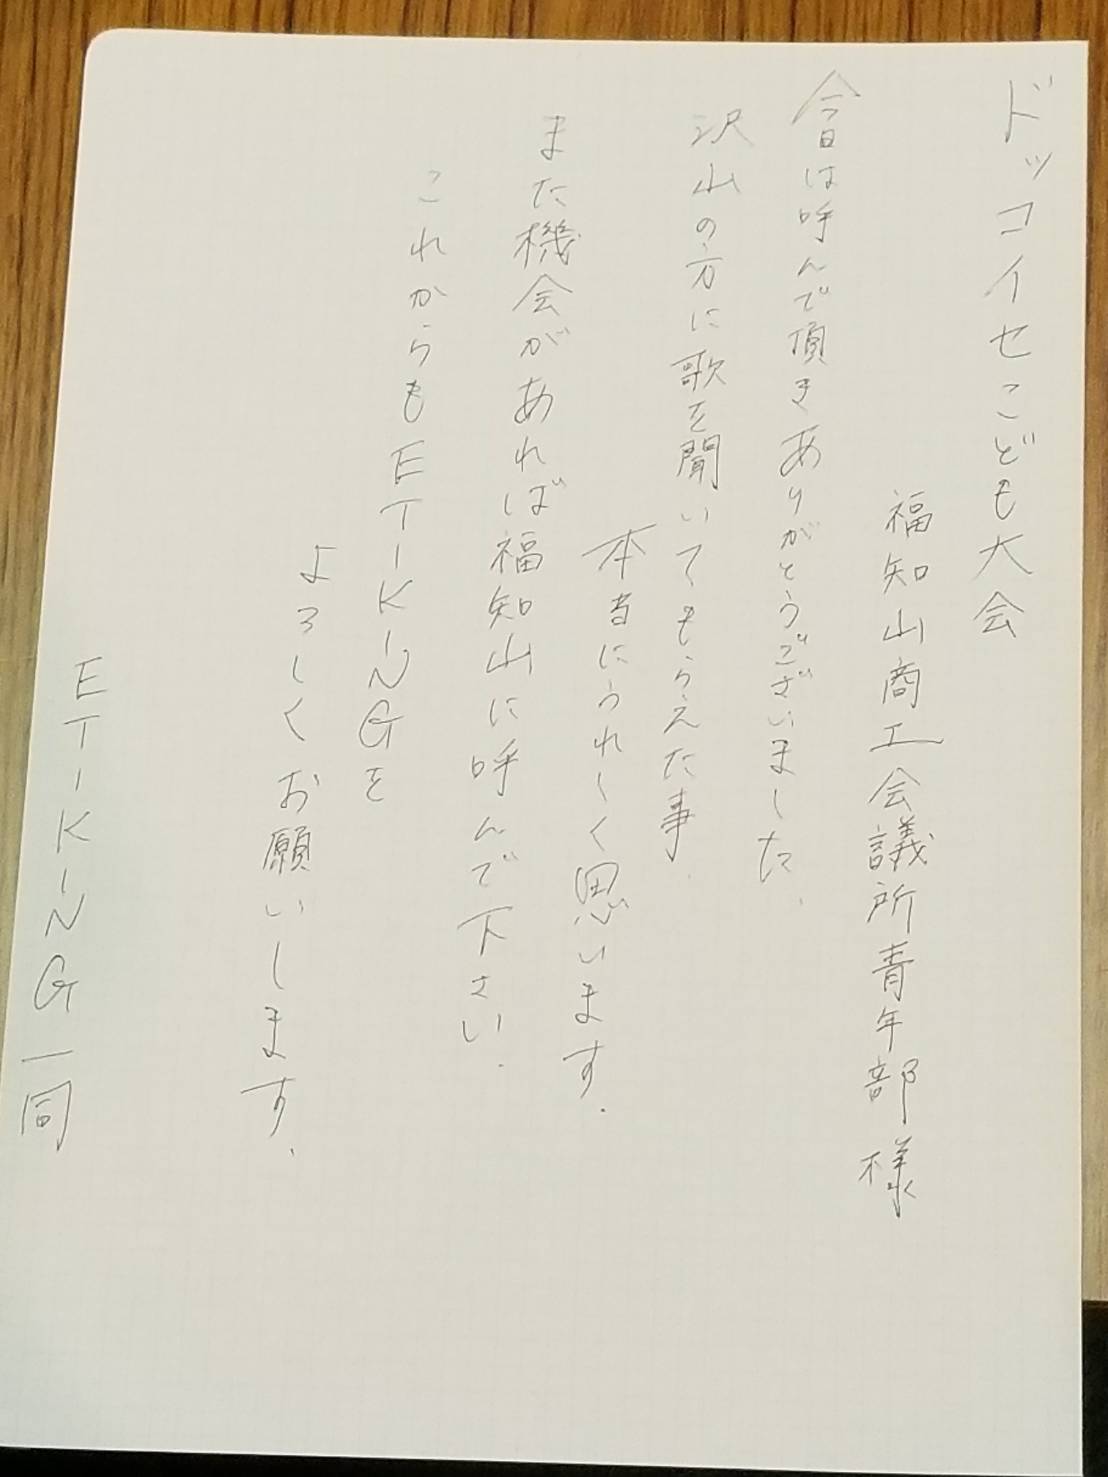 ドッコイセこども大会
福知山商工会議所青年部様
今日は呼んで頂きありがとうございました.
沢山の方に歌を聞いてもらえた事.
本当にうれしく思います.
また機会があれば福知山に呼んで下さい.
これからもET-KINGを
よろしくお願いします.
ET-KING一同